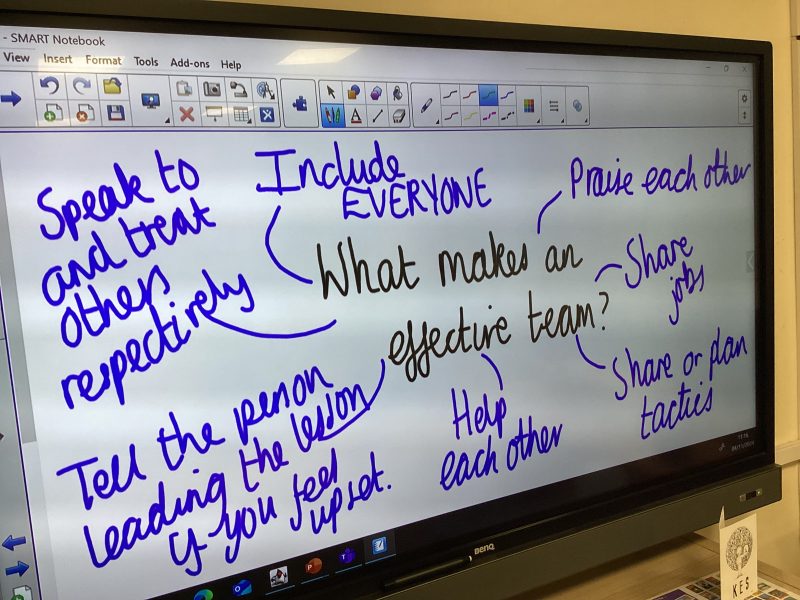 - SMART Notebook
View Insert Format Tools Add-ons Help
Speak to
and treat
others
respectively
Include
EVERYONE
Praise each other
What makes an
effective team?
Share
jobs
Share or plan
tactics
Help
each other
Tell the person
leading the lesson
if you feel
upset.
BenQ
KES